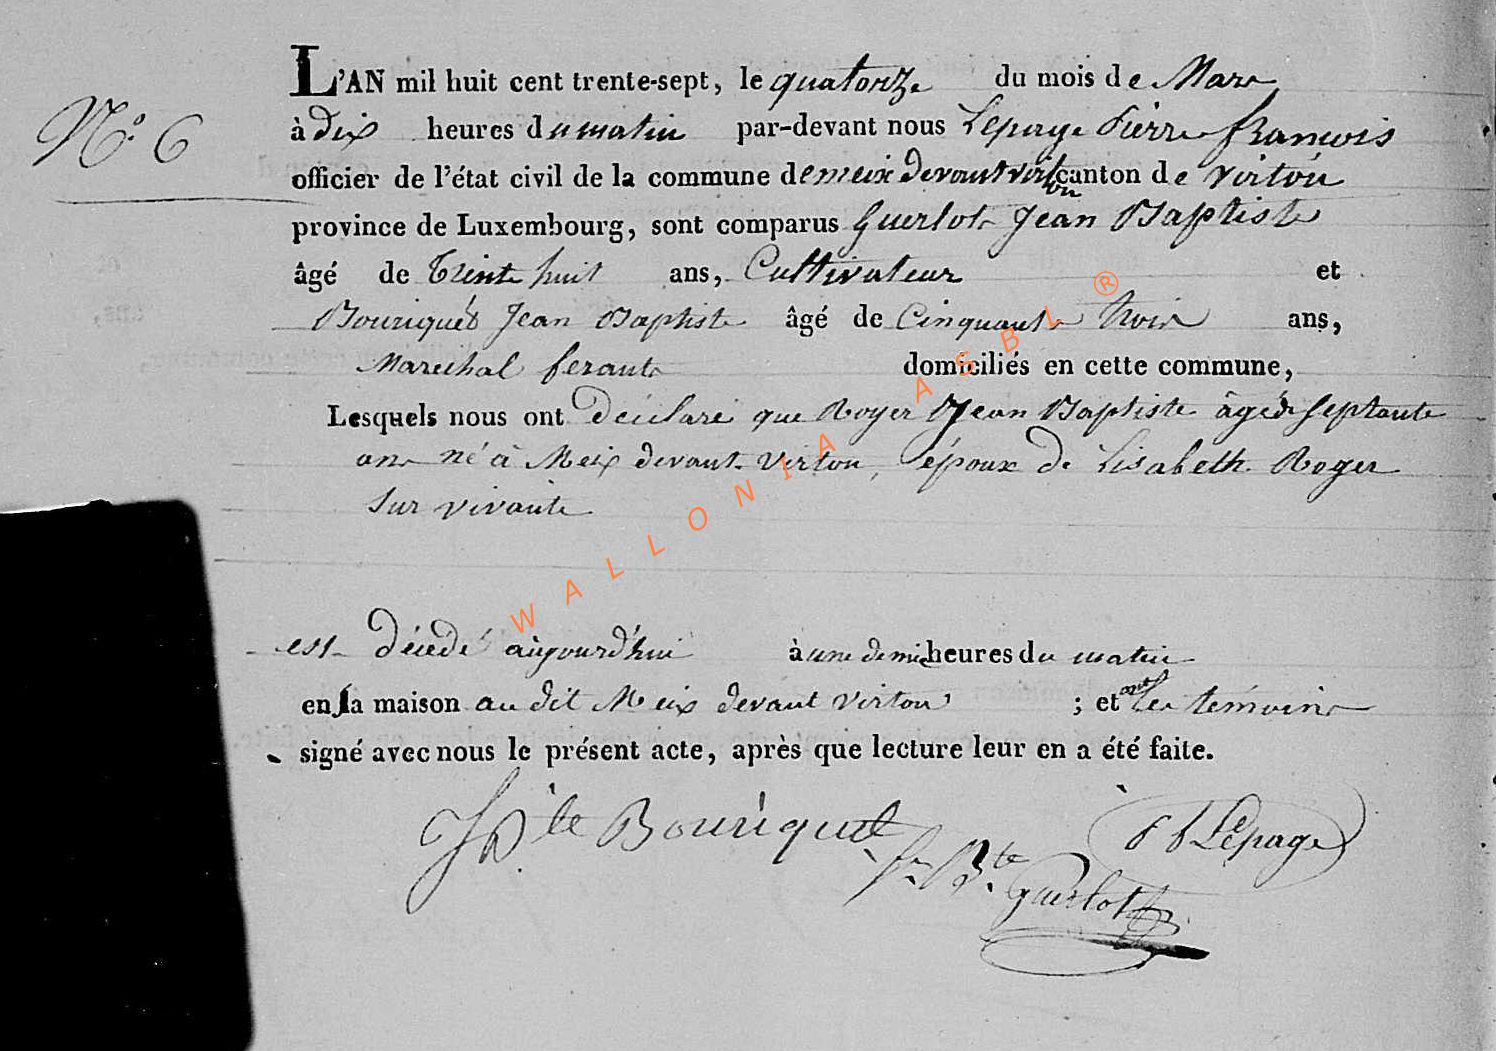 N.° 6
L'AN mil huit cent trente-sept, le quatorze du mois de Mars
à dix heures du matin par-devant nous Lepage Pierre françois
officier de l'état civil de la commune de meix devant virton canton de virton
province de Luxembourg, sont comparus Guerlot Jean Baptiste
âgé de trente huit ans, Cultivateur et
Bouriquet Jean Baptiste âgé de Cinquante trois ans,
Marechal ferant domiciliés en cette commune,
Lesquels nous ont déclaré que Royer Jean Baptiste âgé de septante
ans né à Meix devant virton, époux de Lisabeth Roger
survivante
est décédé aujourd'hui à une demie heures du matin
en la maison au dit Meix devant virton ; et ont les témoins
signé avec nous le présent acte, après que lecture leur en a été faite.
J B te Bouriquet
P f Lepage
J.n B.te guerlot
WALLONIA ASBL ®